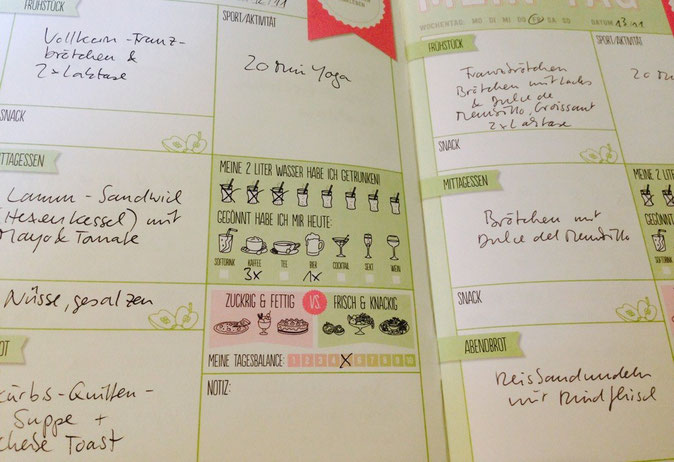 FRÜHSTÜCK
Vollkorn-Franz-
brötchen &
2x Laktase
SPORT/AKTIVITÄT
20 min Yoga
SNACK
MITTAGESSEN
Lamm-Sandwich
(Hexenkessel) mit
Mayo & Tomate
MEINE 2 LITER WASSER HABE ICH GETRUNKEN!
GEGÖNNT HABE ICH MIR HEUTE:
SOFTDRINK KAFFEE TEE BIER COCKTAIL SEKT WEIN
3x 1x
Nüsse, gesalzen
ZUCKRIG & FETTIG VS. FRISCH & KNACKIG
MEINE TAGESBALANCE: 1 2 3 4 X 6 7 8 9 10
NOTIZ:
OT
Kürbis-Quitten-
Suppe +
Toast
WOCHENTAG: MO DI MI DO FR SA SO DATUM: 13/11
FRÜHSTÜCK
Franzbrötchen
Brötchen mit Lachs
& Dulce de
Membrillo, Croissant
2x Laktase
SPORT/AKTIVITÄT
20 m
SNACK
MITTAGESSEN
Brötchen mit
Dulce del Membrillo
MEINE 2 L
GEGÖNNT
SOFTDRINK
SNACK
ZU
MEINE
NOTIZ
ABENDBROT
Reisbandnudeln
mit Rindfleisch